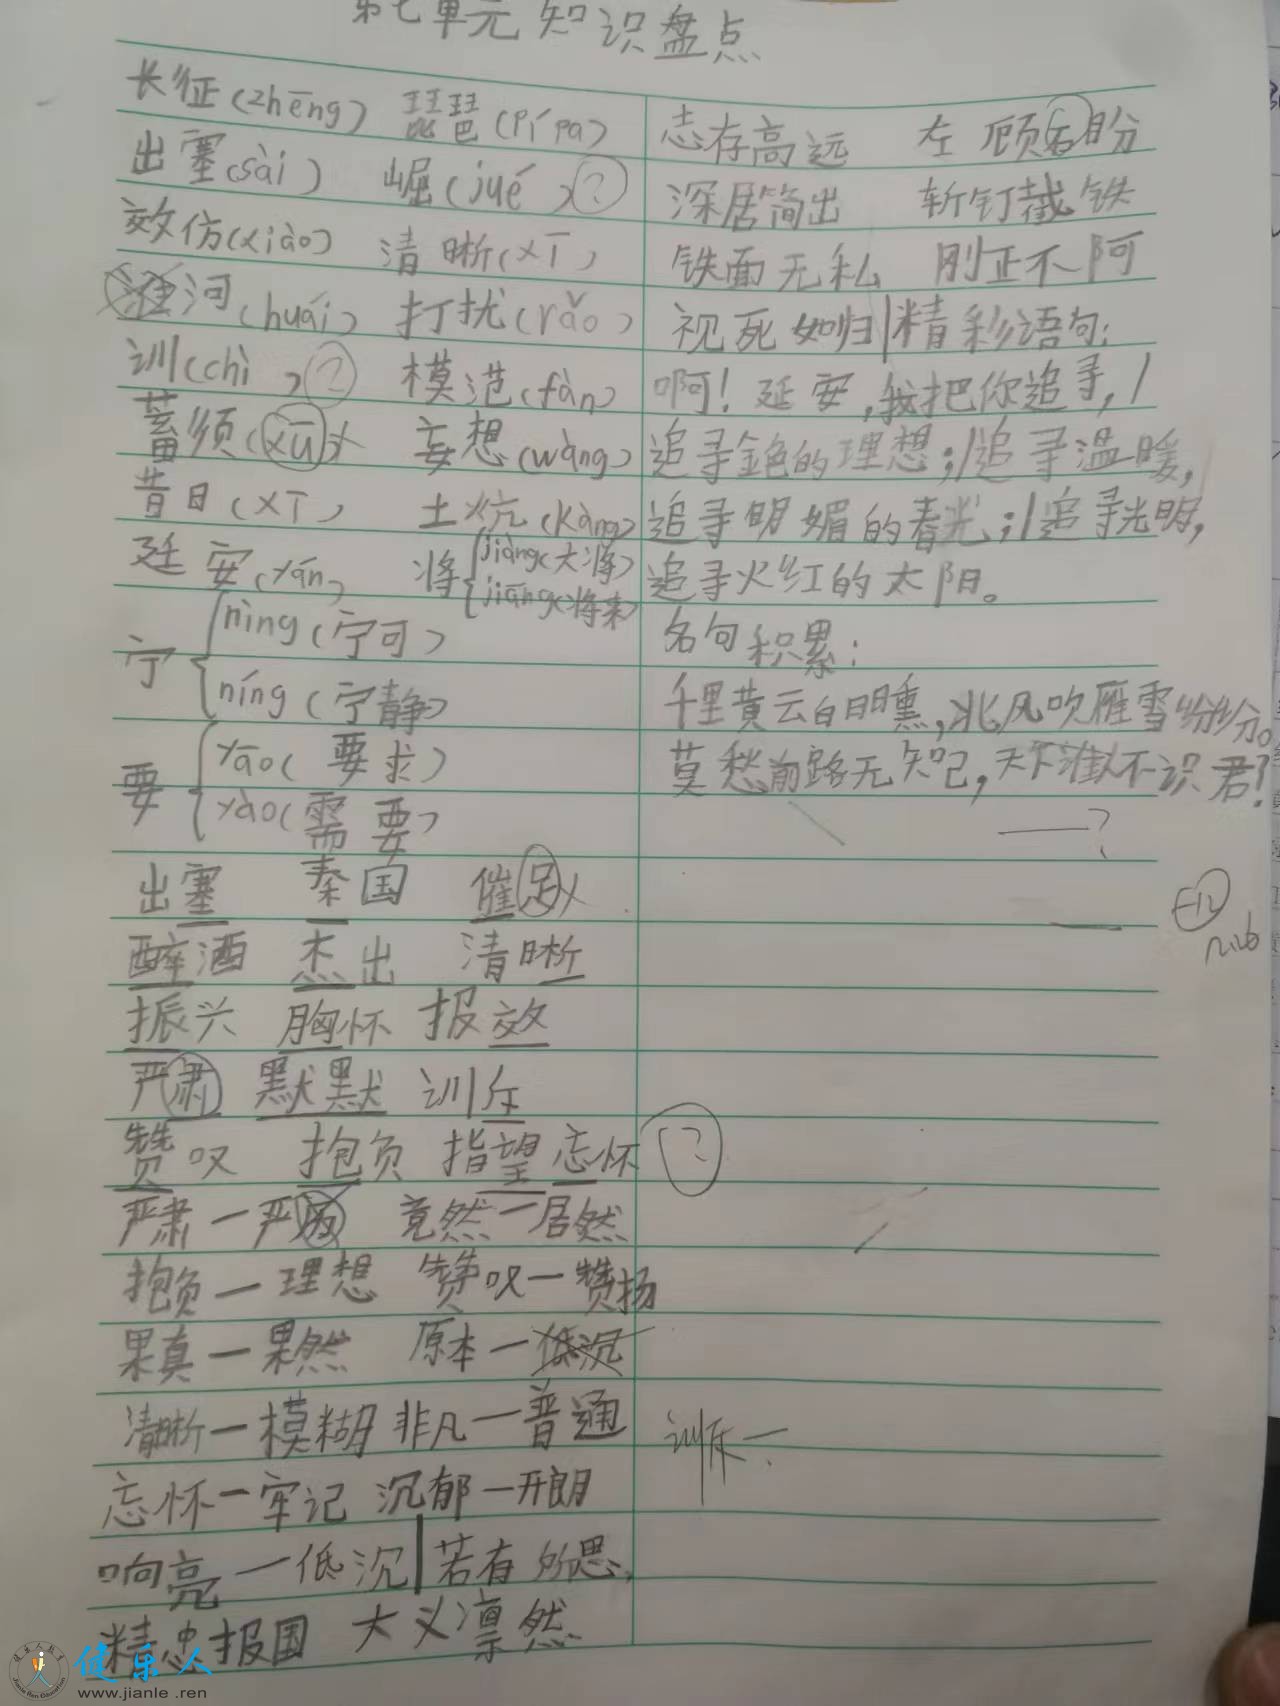 第七单元知识盘点
长征(zhēng) 琵琶(pípa)
出塞(sài) 崛(jué)?
效仿(xiào) 清晰(xī)
淮河(huái) 打扰(rǎo)
训(chì)? 模范(fàn)
蓄须(xū) 妄想(wàng)
昔日(xī) 土炕(kàng)
延安(yán) 将 jiàng(大将)
jiāng(将来)
宁 nìng(宁可)
níng(宁静)
要 yāo(要求)
yào(需要)
出塞 秦国 催足
醉酒 杰出 清晰
振兴 胸怀 报效
严肃 默默 训斥
赞叹 抱负 指望 忘怀
严肃一严厉 竟然一居然
抱负一理想 赞叹一赞扬
果真一果然 原本一低沉
清晰一模糊 非凡一普通
忘怀一牢记 沉郁一开朗
响亮一低沉|若有所思,
精忠报国 大义凛然
志存高远 左顾右盼
深居简出 斩钉截铁
铁面无私 刚正不阿
视死如归|精彩语句:
啊!延安,我把你追寻,/
追寻金色的理想;/追寻温暖,
追寻明媚的春光;/追寻光明,
追寻火红的太阳。
名句积累:
千里黄云白日曛,北风吹雁雪纷纷。
莫愁前路无知己,天下谁人不识君?
—?
?
训斥一
健乐人
www.jianle.ren